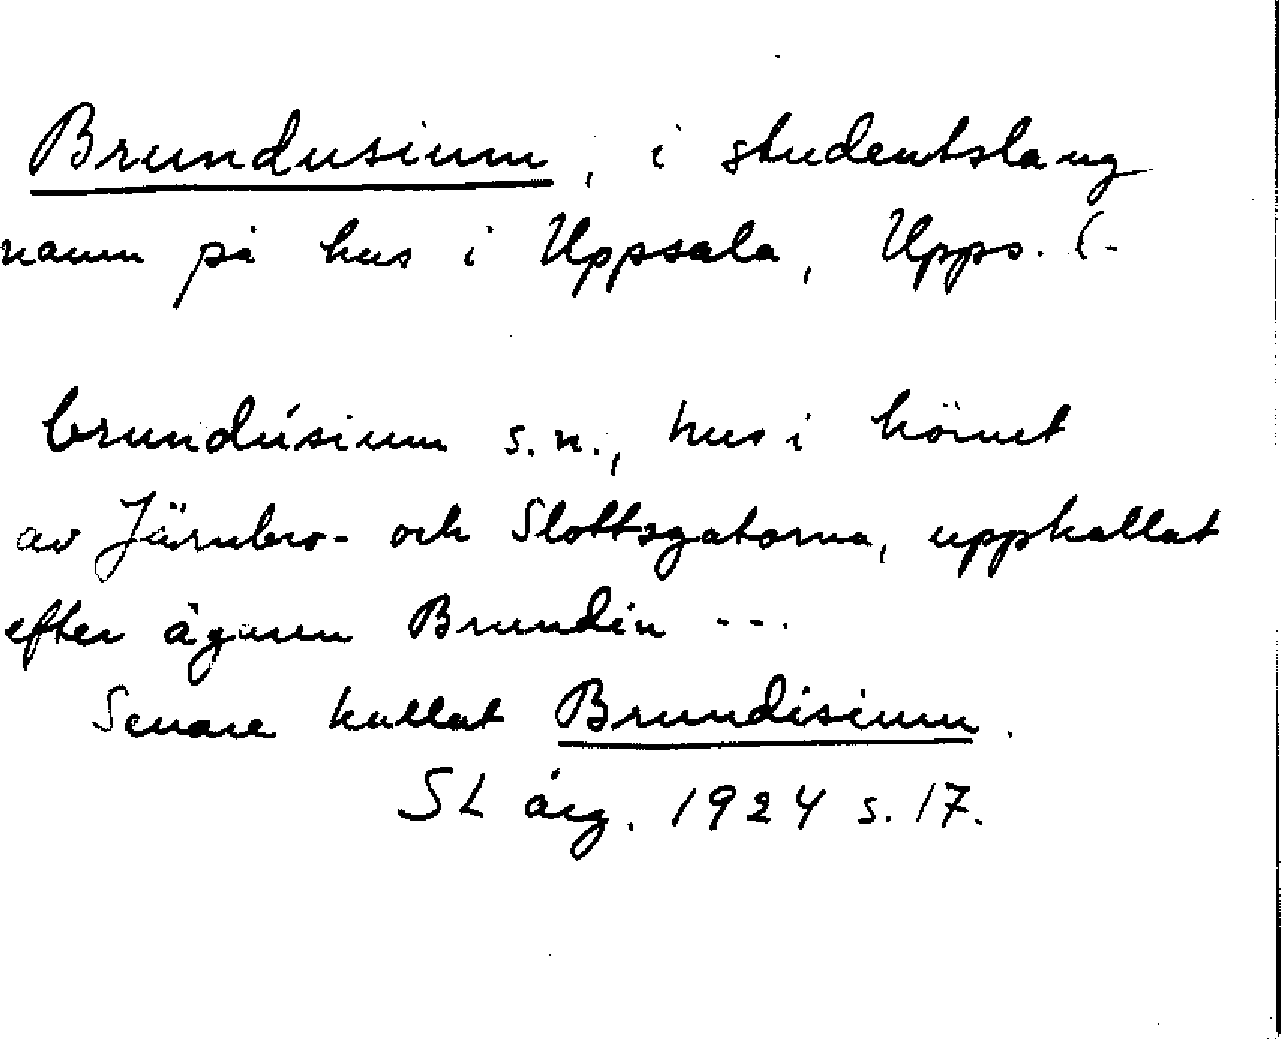 Brundusium, i studentslang
namn på hus i Uppsala, Upps. l.
brundúsium s.n., hus i hörnet
av Järnbro- och Slottsgatorna, uppkallat
efter ägaren Brundin ---.
Senare kallat Brundisium.
SL årg. 1924 s. 17.